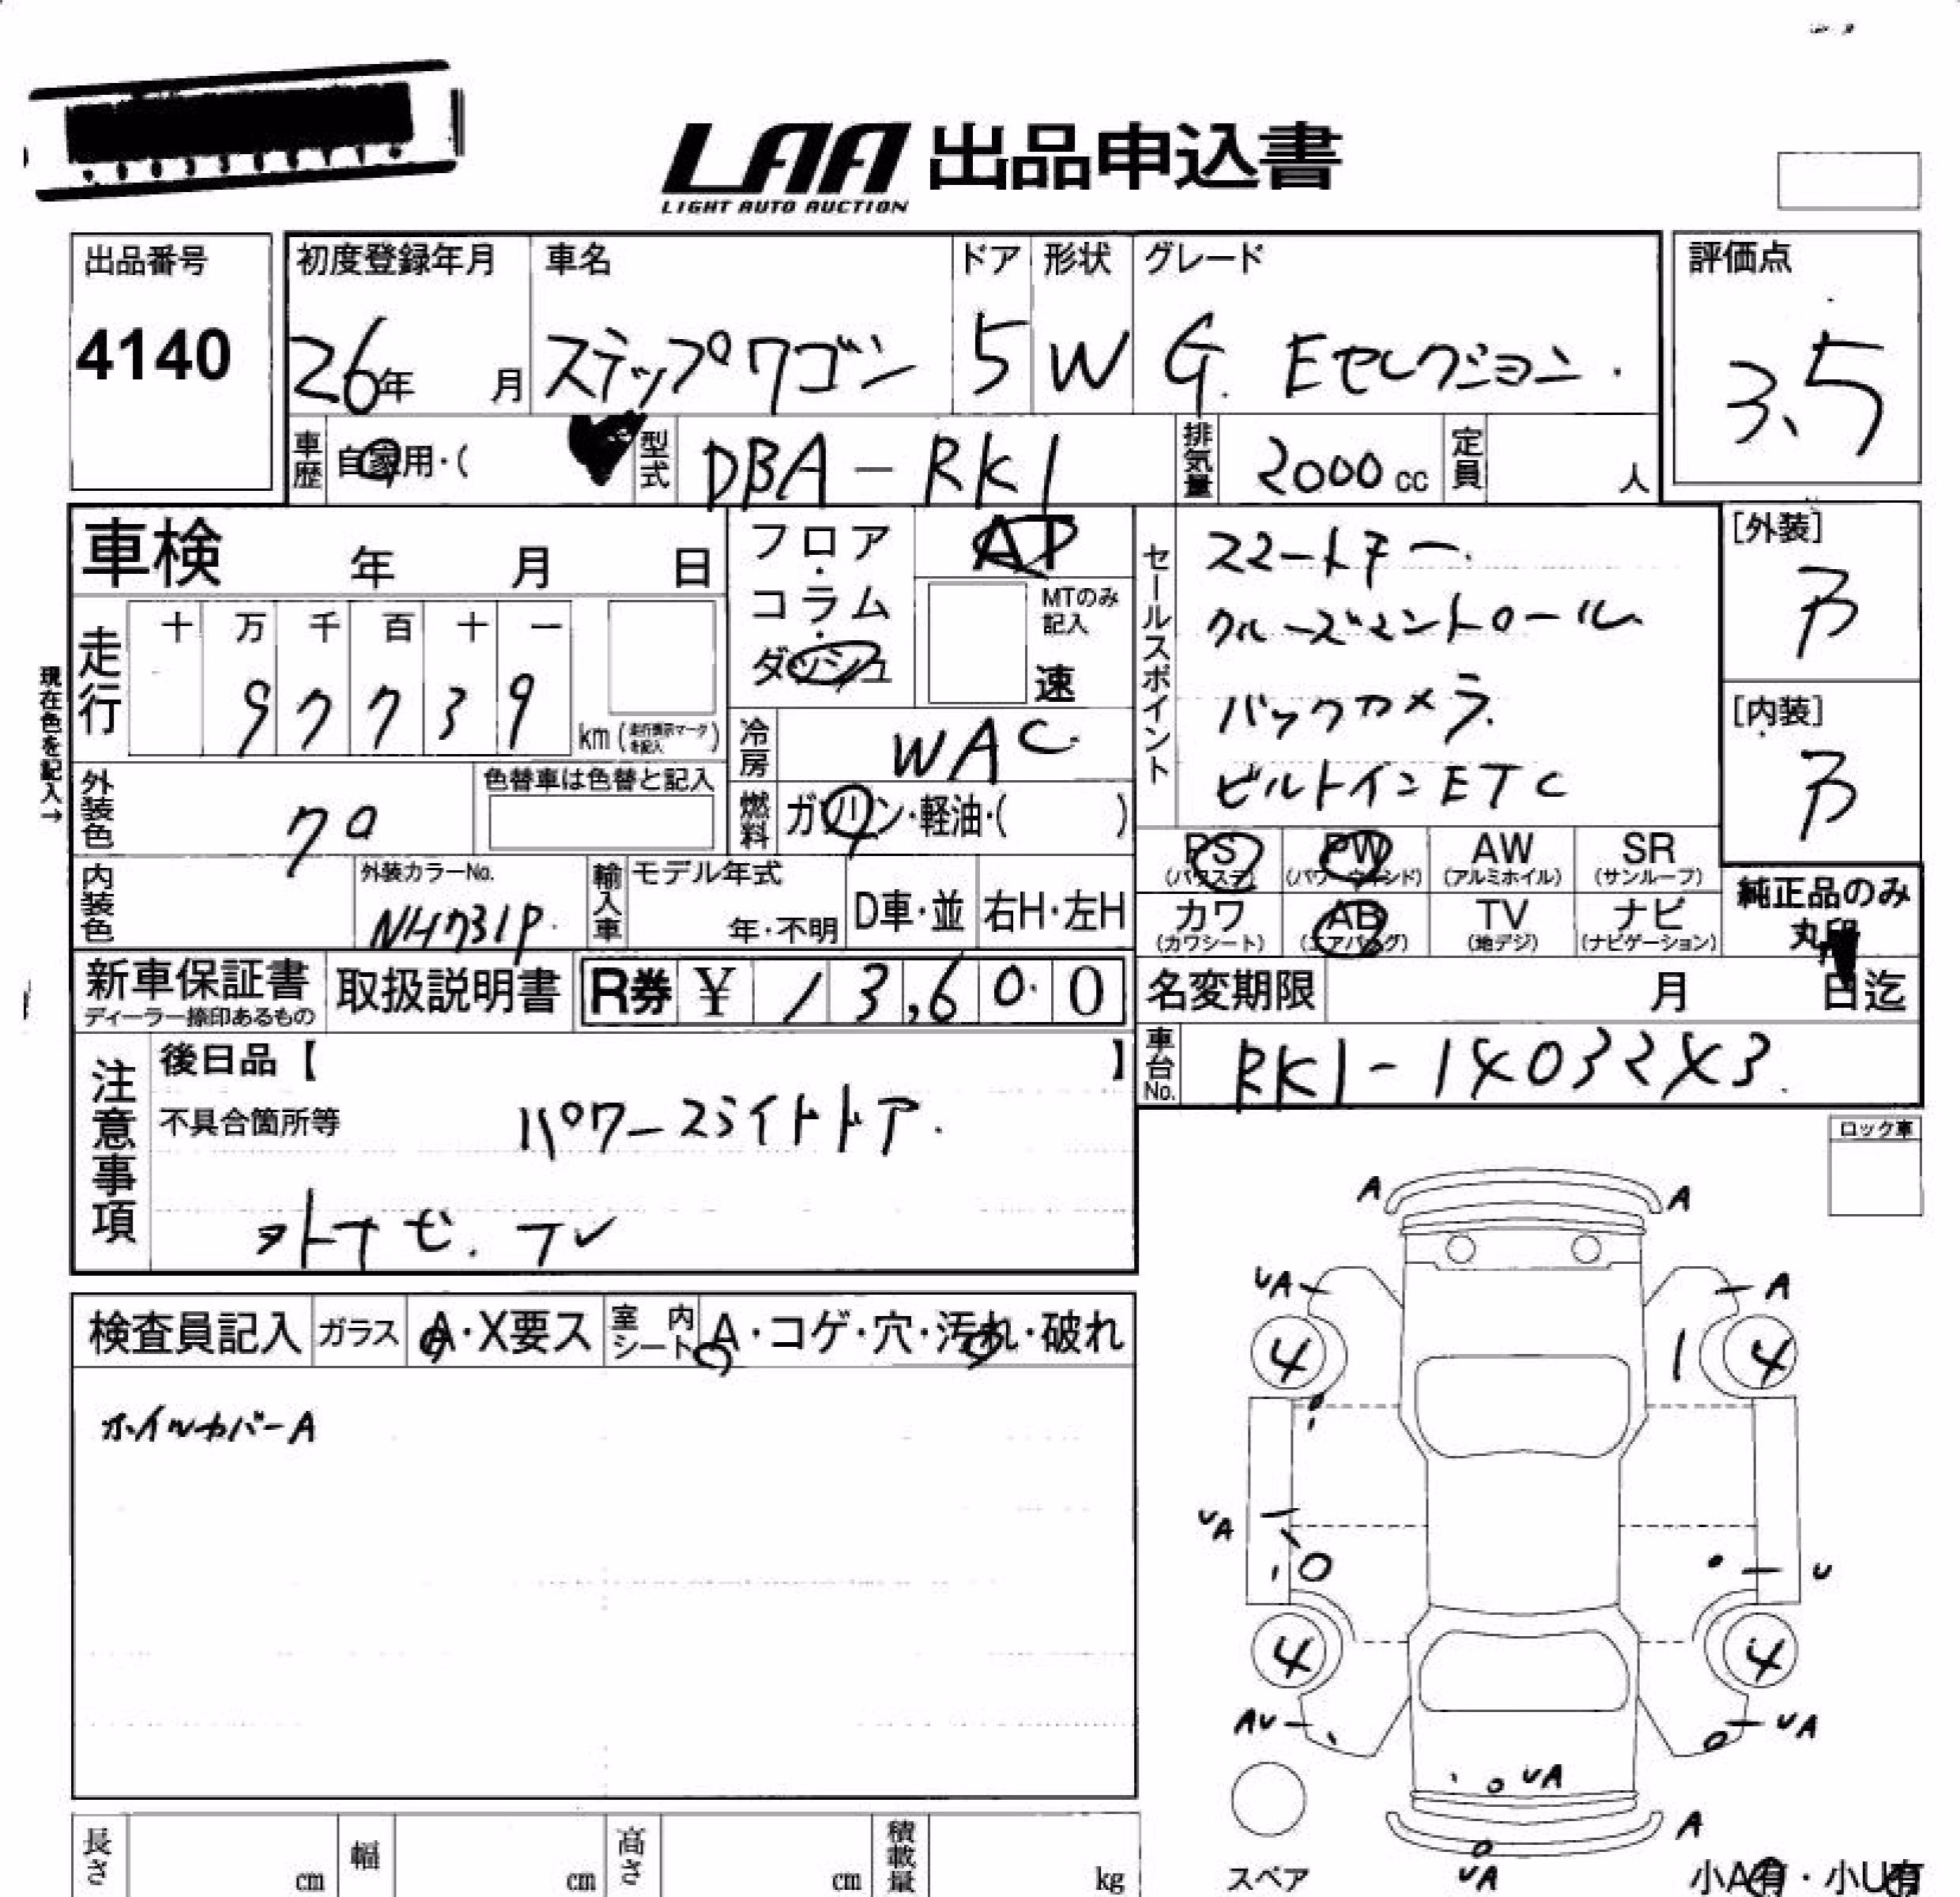 LAA 出品申込書
LIGHT AUTO AUCTION
出品番号
4140
初度登録年月
26年 月
車名
ステップワゴン
ドア
5
形状
W
グレード
G. Eセレクション.
評価点
3.5
車歴 自家用・(
型式 DBA-RK1
排気量 2000cc
定員 人
車検 年 月 日
走行
十 万 千 百 十 一
9 7 7 3 9
km (走行表示マークを記入)
現在色を記入→
外装色 クロ
色替車は色替と記入
内装色
外装カラーNo.
NH731P.
フロア・コラム・ダッシュ
AT
MTのみ記入
速
冷房 WAC
燃料 ガソリン・軽油・( )
輸入車
モデル年式
年・不明
D車・並
右H・左H
セールスポイント
スマートキー.
クルーズコントロール
バックカメラ.
ビルトインETC
[外装]
B
[内装]
B
PS (パワステ)
PW (パワーウインド)
AW (アルミホイル)
SR (サンルーフ)
カワ (カワシート)
AB (エアバッグ)
TV (地デジ)
ナビ (ナビゲーション)
純正品のみ
丸印
新車保証書
ディーラー捺印あるもの
取扱説明書
R券 ¥ 13,60.0
名変期限 月 日迄
車台No. RK1-1403243.
注意事項
後日品【 】
不具合箇所等 パワースライドドア.
外ナビ. TV
ロック車
検査員記入
ガラス A・X要ス
室内シート A・コゲ・穴・汚れ・破れ
ホイルカバーA
A A
UA A
4 1 4
UA U
4 4
AU UA
UA
A
UA
スペア
小A有・小U有
長さ cm
幅 cm
高さ cm
積載量 kg